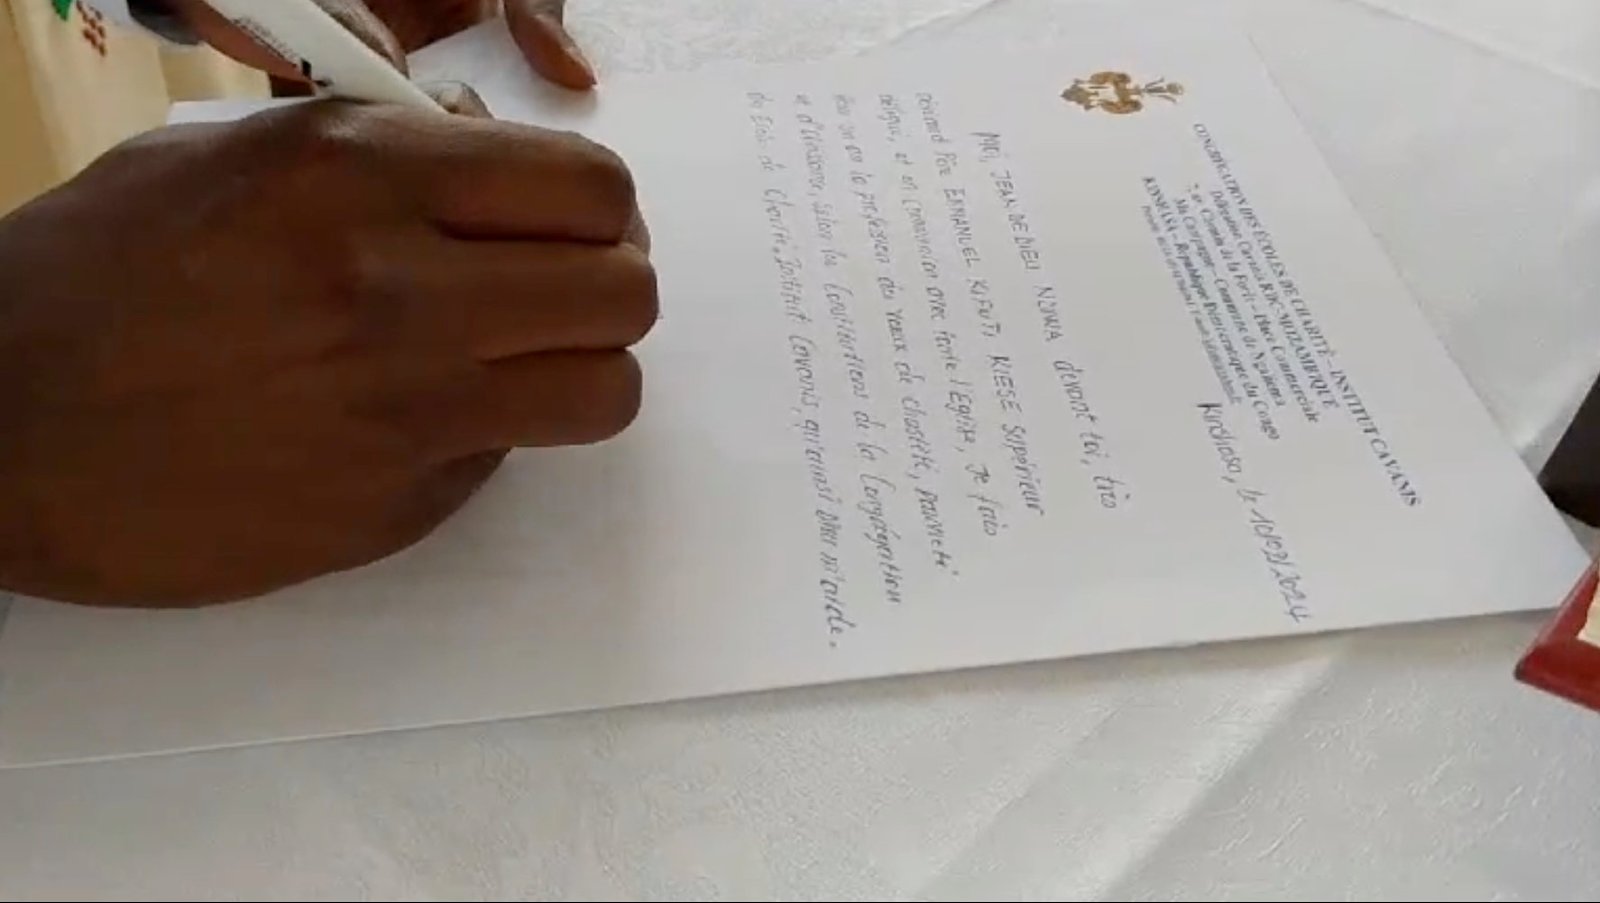 CONGRÉGATION DES ÉCOLES DE CHARITÉ - INSTITUT CAVANIS
Délégation Cavanis RDC-MOZAMBIQUE
7, av. de la Forêt - Place Commerciale
Ma Campagne - Commune de Ngaliema
KINSHASA - République Démocratique du Congo
Kinshasa, le 10/09/2024
Moi, JEAN DE DIEU devant toi, très
révérend Père EMMANUEL KIFUTI KIESE Supérieur
délégué, et en communion avec toute l'Eglise, Je fais
la profession des voeux de chasteté, pauvreté
et d'obéissance, selon les Constitutions de la Congrégation
des Ecoles de Charité, Institut Cavanis, qu'ainsi Dieu m'aide.